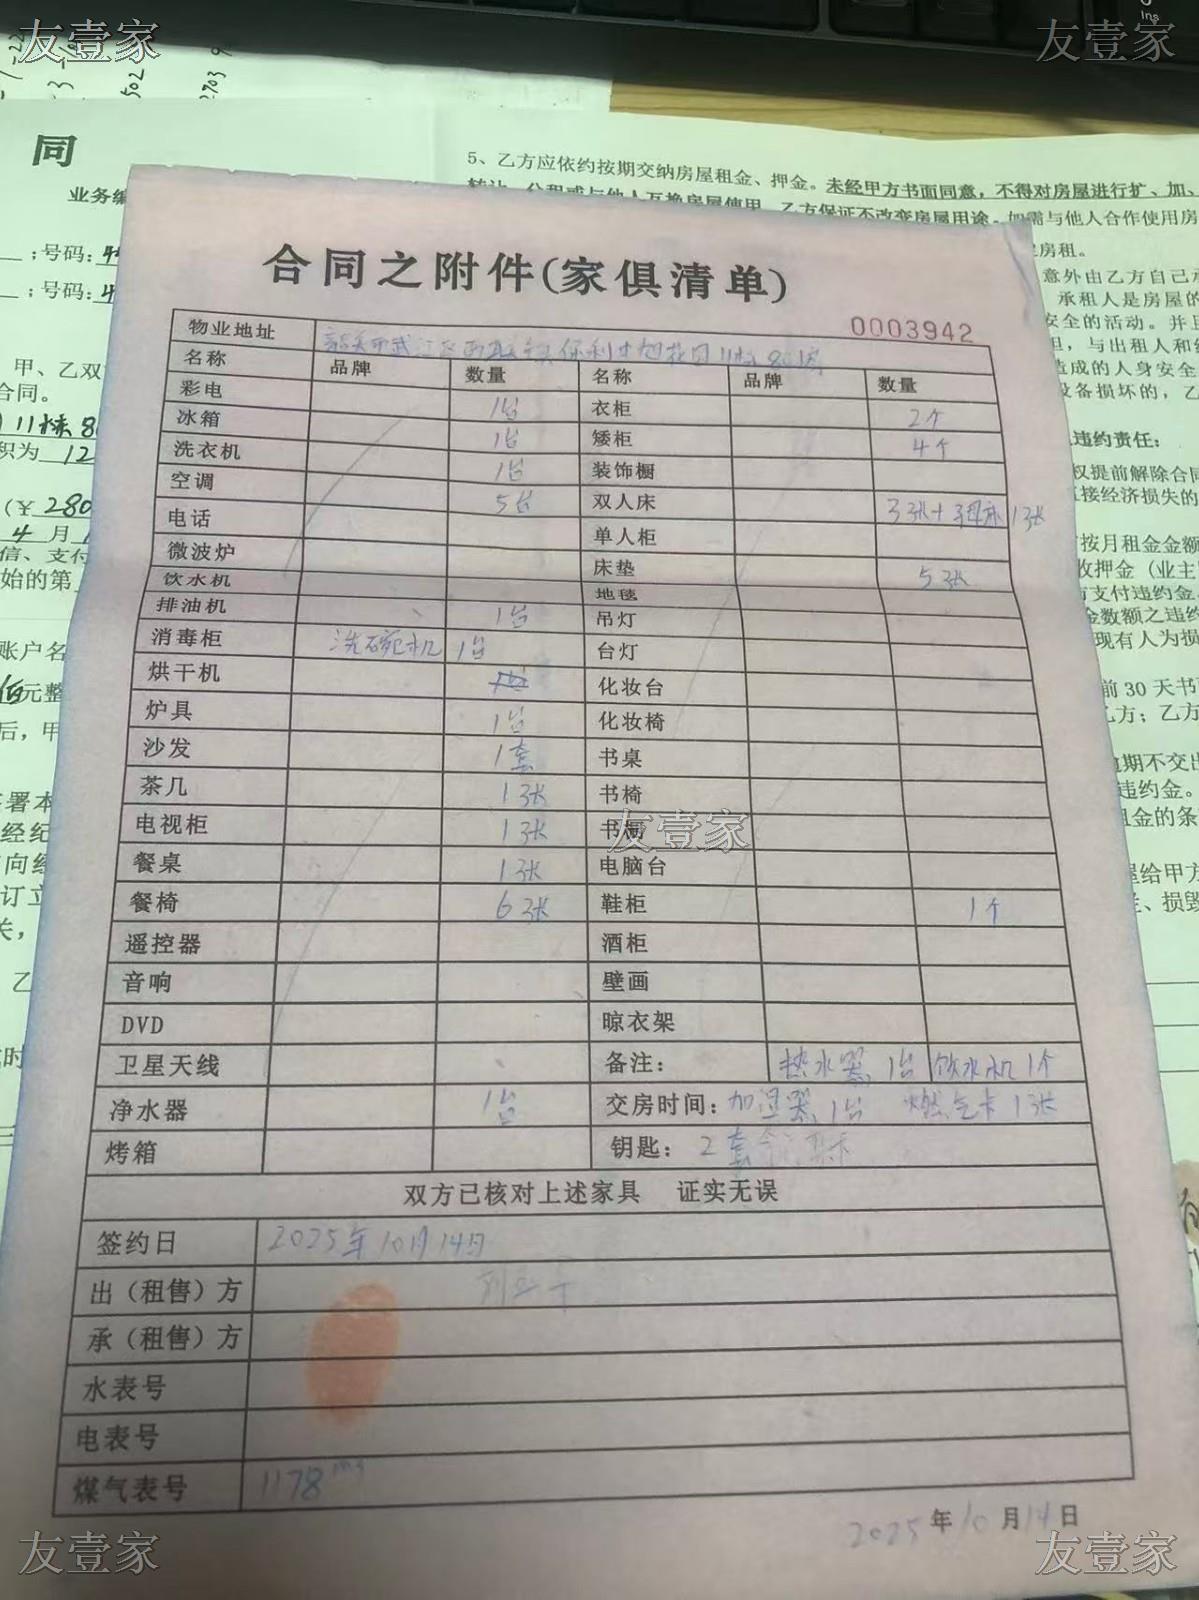 友壹家
友壹家
同
业务编
;号码:
;号码:
甲、乙双
合同。
11栋8
积为 12
(￥280
4 月
信、支付
始的第
账户名
佰元整
后，甲
5、乙方应依约按期交纳房屋租金、押金。未经甲方书面同意，不得对房屋进行扩、加、
转让、分租或与他人互换房屋使用，乙方保证不改变房屋用途。如需与他人合作使用房
房租。
意外由乙方自己承
承租人是房屋的
安全的活动。并且
但，与出租人和经
造成的人身安全
设备损坏的，乙
违约责任:
权提前解除合同
直接经济损失的
按月租金金额
收押金（业主
方支付违约金。
金数额之违约
现有人为损
前 30 天书
方；乙方
逾期不交出
违约金。
租金的条
屋给甲方
、损毁
合同之附件(家俱清单)
0003942
物业地址 保利 花园11栋801房
名称 品牌 数量 名称 品牌 数量
彩电 1台 衣柜 2个
冰箱 1台 矮柜 4个
洗衣机 1台 装饰橱
空调 5台 双人床 3张+ 1张
电话 单人柜
微波炉 床垫 5张
饮水机 地毯
排油机 1台 吊灯
消毒柜 洗碗机 1台 台灯
烘干机 化妆台
炉具 1台 化妆椅
沙发 1套 书桌
茶几 1张 书椅
电视柜 1张 书橱
友壹家
餐桌 1张 电脑台
餐椅 6张 鞋柜 1个
遥控器 酒柜
音响 壁画
DVD 晾衣架
卫星天线 备注: 热水器 1台 饮水机1个
净水器 1台 交房时间: 加湿器1台 燃气卡1张
烤箱 钥匙: 2套
双方已核对上述家具 证实无误
签约日 2025年10月14日
出（租售）方
承（租售）方
水表号
电表号
煤气表号 1178m3
2025年10月14日
友壹家
友壹家